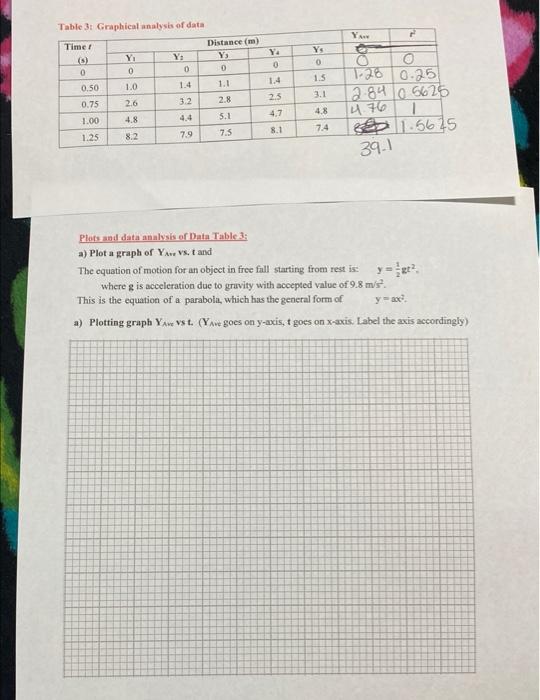 Table 3: Graphical analysis of data
Time t (s) Distance (m) YAve t²
Y₁ Y₂ Y₃ Y₄ Y₅
0 0 0 0 0 0 0 0
0.50 1.0 1.4 1.1 1.4 1.5 1.28 0.25
0.75 2.6 3.2 2.8 2.5 3.1 2.84 0.5625
1.00 4.8 4.4 5.1 4.7 4.8 4.76 1
1.25 8.2 7.9 7.5 8.1 7.4 1.5625
39.1
Plots and data analysis of Data Table 3:
a) Plot a graph of YAve vs. t and
The equation of motion for an object in free fall starting from rest is: y = ½gt².
where g is acceleration due to gravity with accepted value of 9.8 m/s².
This is the equation of a parabola, which has the general form of y = ax².
a) Plotting graph YAve vs t. (YAve goes on y-axis, t goes on x-axis. Label the axis accordingly)